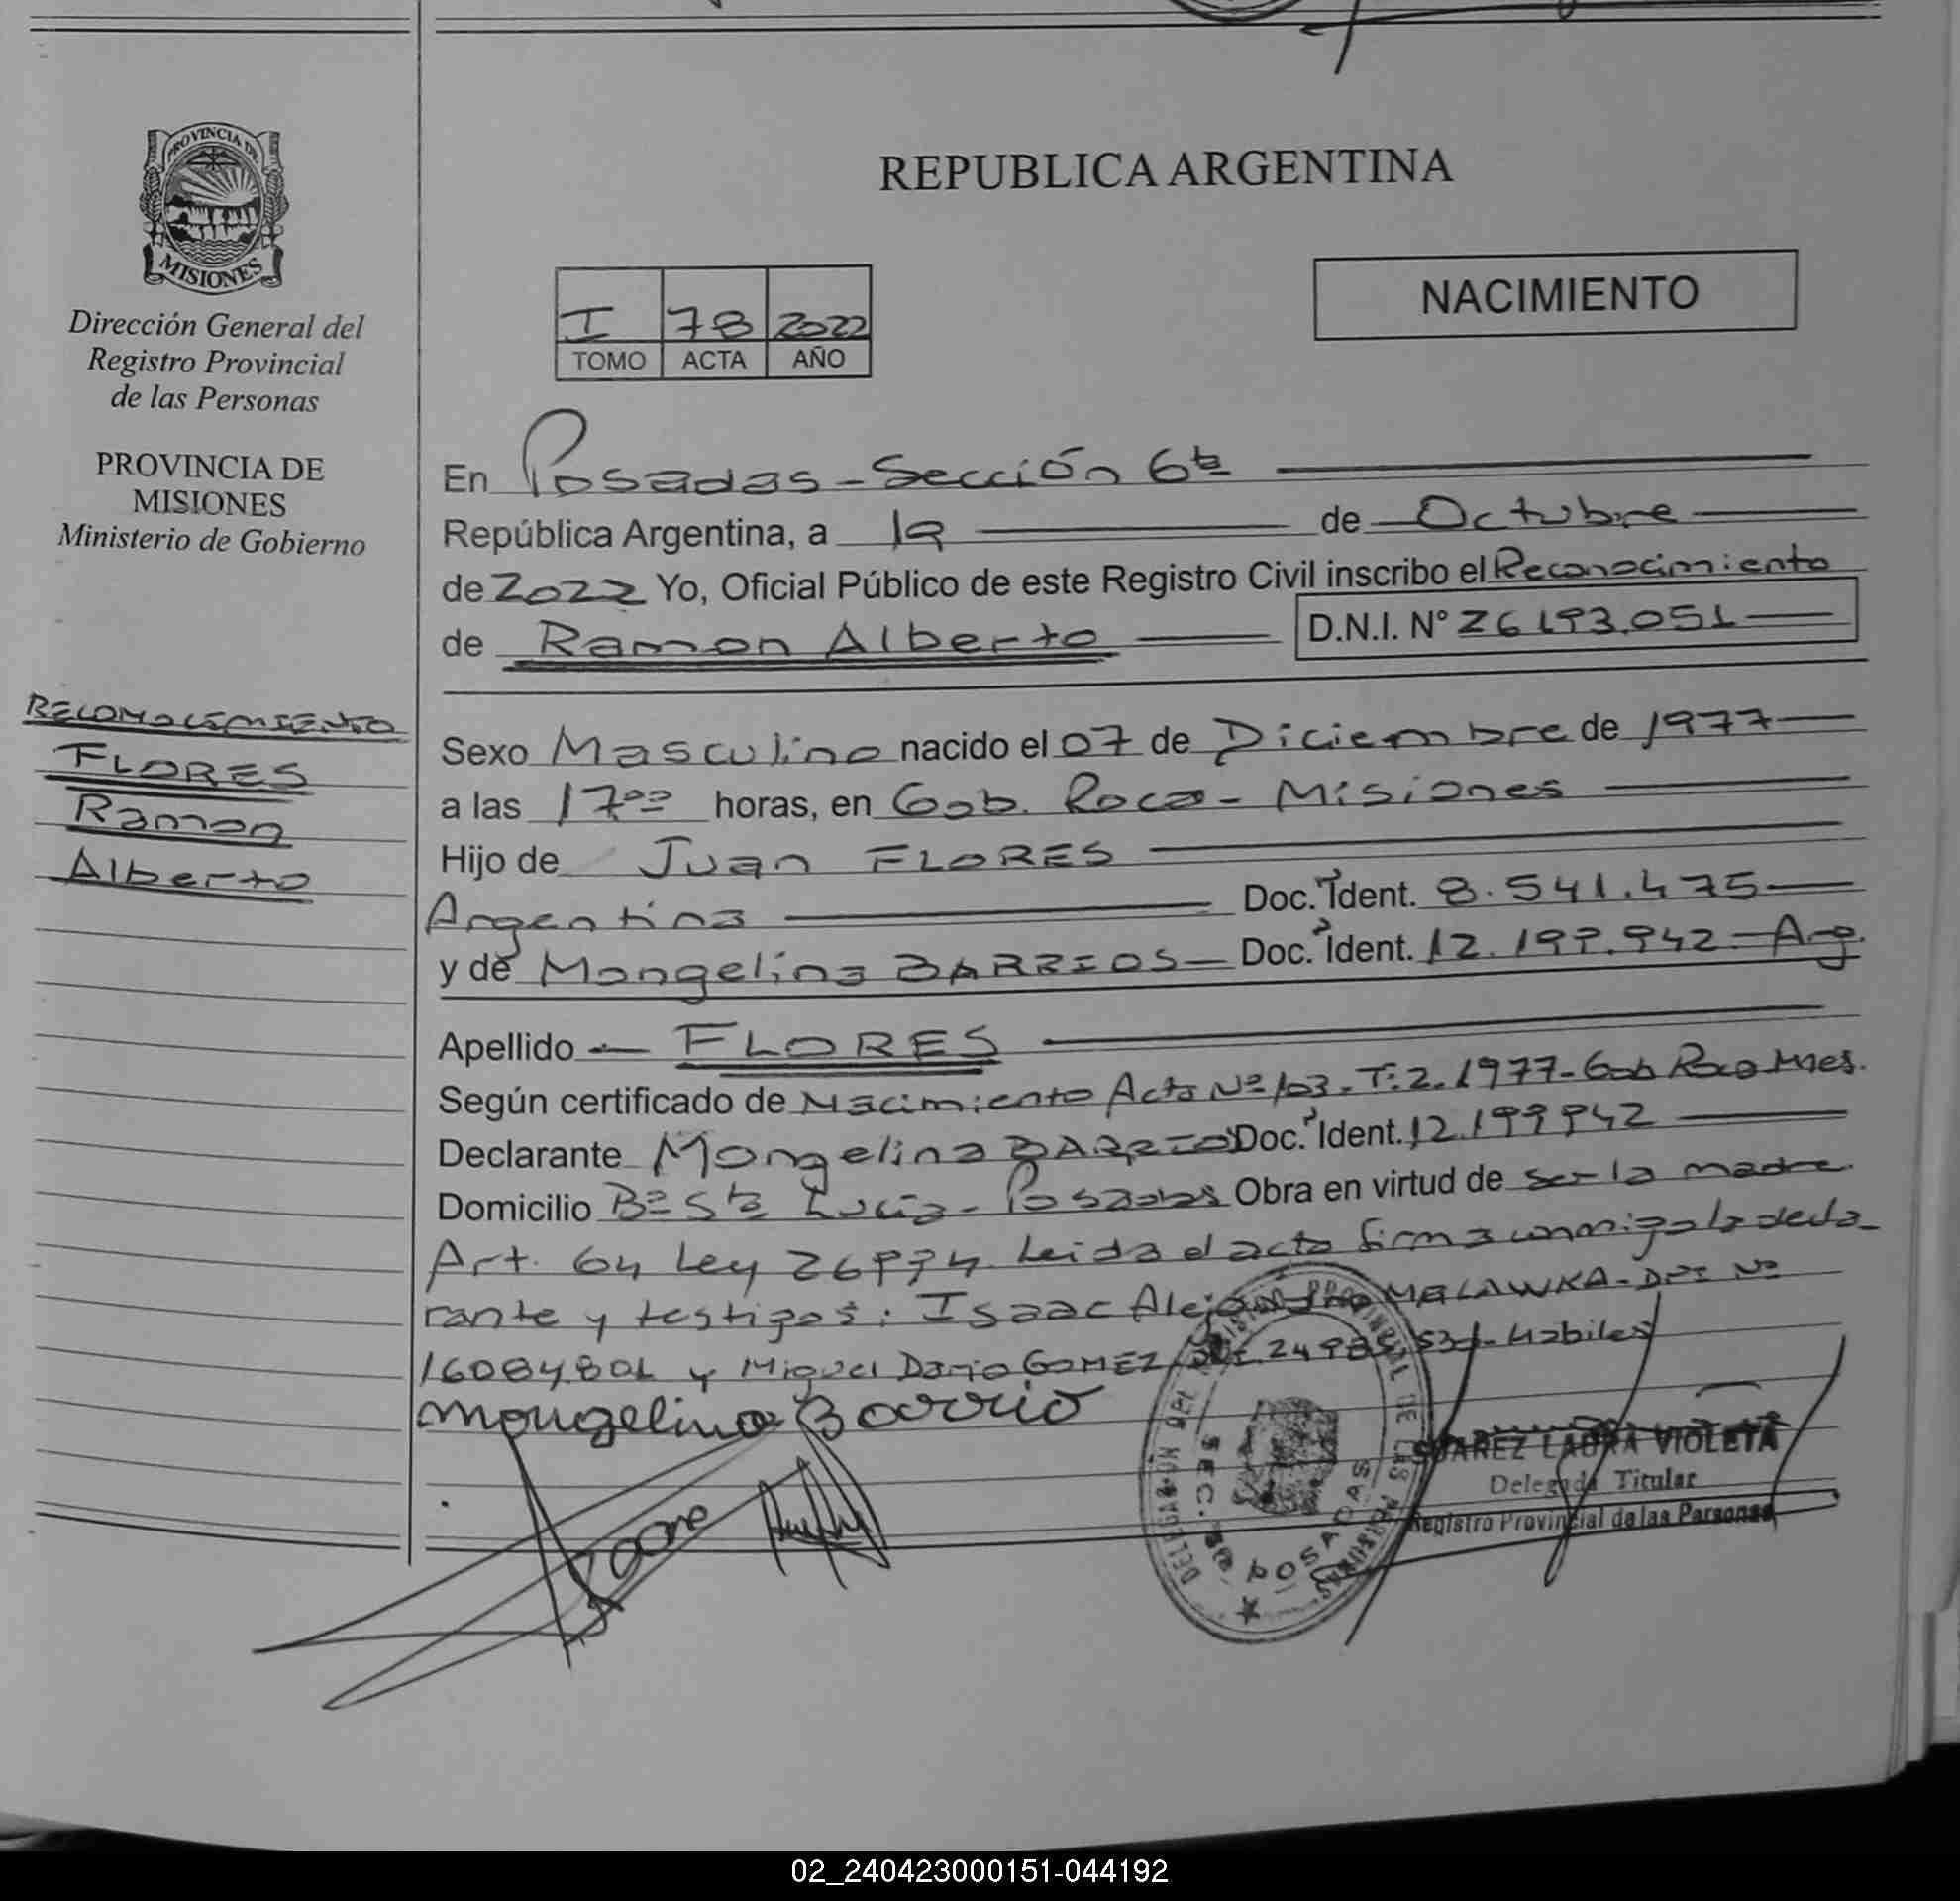 PROVINCIA DE
MISIONES
Dirección General del
Registro Provincial
de las Personas
PROVINCIA DE
MISIONES
Ministerio de Gobierno
RECONOCIMIENTO
FLORES
Ramon
Alberto
REPUBLICA ARGENTINA
I 78 2022
TOMO ACTA AÑO
NACIMIENTO
En Posadas - Sección 6ta
República Argentina, a 19 de Octubre
de 2022 Yo, Oficial Público de este Registro Civil inscribo el Reconocimiento
de Ramon Alberto D.N.I. Nº 26193.051
Sexo Masculino nacido el 07 de Diciembre de 1977
a las 17:00 horas, en Gob. Roca - Misiones
Hijo de Juan FLORES
Argentina Doc. Ident. 8.541.475
y de Mongelina BARRIOS - Doc. Ident. 12.199.942 - Arg.
Apellido - FLORES
Según certificado de Nacimiento Acta Nº 103 - T: 2. 1977 - Gob Roca Mnes.
Declarante Mongelina BARRIO Doc. Ident. 12.199942
Domicilio Bº Sta Lucía - Posadas Obra en virtud de ser la madre.
Art. 64 Ley 26994. Leida el acta firma conmigo la decla-
rante y testigos: Isaac Alejandro MELAWKA - DNI Nº
16084801 y Miguel Dario GOMEZ Habiles
Mongelina Barrio
DELEGACIÓN DEL REGISTRO PROVINCIAL DE LAS PERSONAS
SEC. POSADAS
SUAREZ LAURA VIOLETA
Delegada Titular
Registro Provincial de las Personas
02_240423000151-044192